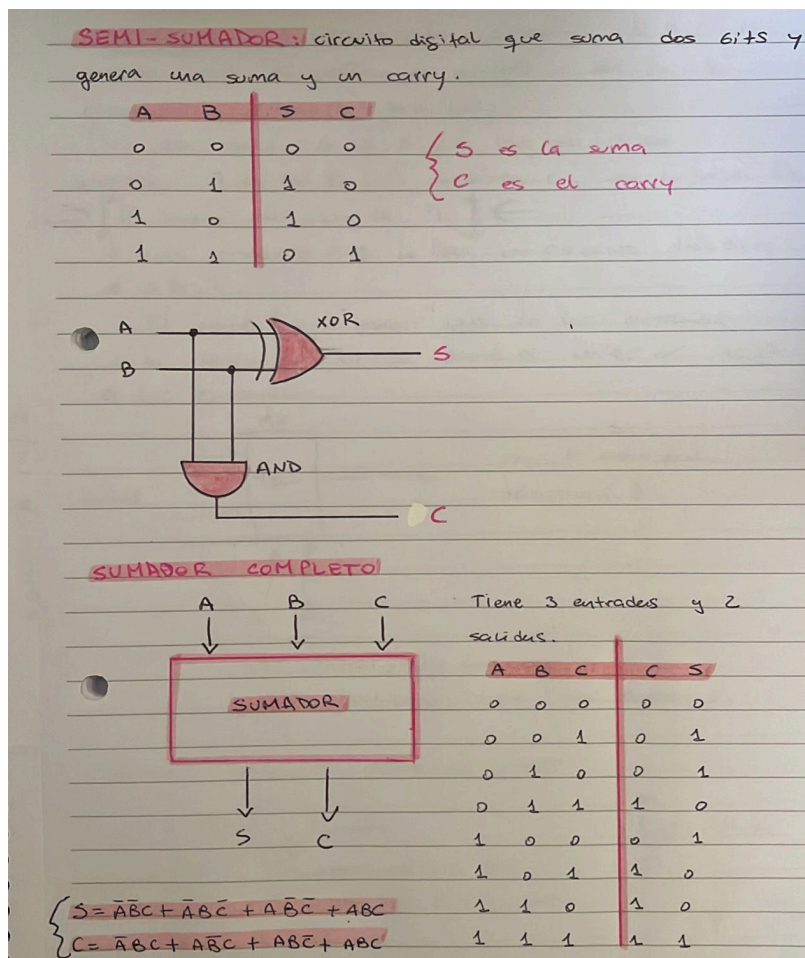 SEMI-SUMADOR: circuito digital que suma dos bits y
genera una suma y un carry.
A B S C
0 0 0 0
0 1 1 0
1 0 1 0
1 1 0 1
S es la suma
C es el carry
A
B
XOR
S
AND
C
SUMADOR COMPLETO
A B C
SUMADOR
S C
Tiene 3 entradas y 2
salidas.
A B C C S
0 0 0 0 0
0 0 1 0 1
0 1 0 0 1
0 1 1 1 0
1 0 0 0 1
1 0 1 1 0
1 1 0 1 0
1 1 1 1 1
S = A̅B̅C + A̅BC̅ + AB̅C̅ + ABC
C = A̅BC + AB̅C + ABC̅ + ABC